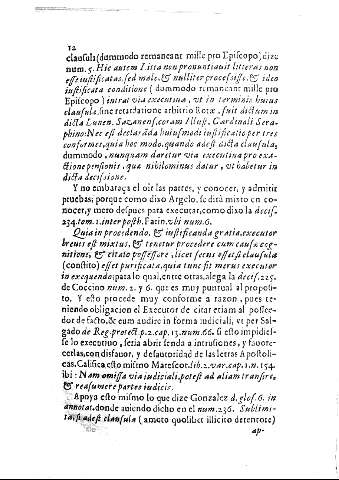 12
clausula (dummodo remaneant mille pro Episcopo) dize
num. 5. Hic autem Lista non pronuntiauit litteras non
esse iustificatas, sed male, & nulliter processisse, & ideo
iustificata conditione (dummodo remaneant mille pro
Episcopo) intrat via executiua, vt in terminis huius
clausulæ, sine retardatione arbitrio Rotæ, fuit dictum in
dicta Lunen. Sazanensi, coram Illust. Cardinali Sera-
phino: Nec est dectarãda huiusmodi iustificatio per tres
conformes, quia hoc modo, quando adest dicta clausula,
dummodo, nunquam daretur via executiua pro exa-
ctione pensionis, qua nibilominus datur, vt habetur in
dicta decissione.
Y no embaraça el oir las partes, y conocer, y admitir
pruebas; porque como dixo Argelo, sedirà mixto en co-
nocer, y mero despues para executar, como dixo la decis.
234. tom. 1. inter posth. Farin. vbi num. 6.
Quia in procedendo, & iustificanda gratia, executor
breuis est mixtus, & tenetur procedere cum causæ cog-
nitione, & citato possessore, licet secus esset si clausula
(constito) esset purificata, quia tunc fit merus executor
in exequendo; para lo qual, entre otras, alega la decis. 225.
de Coccino num. 2. y 6. que es muy puntual al proposi-
to. Y esto procede muy conforme a razon, pues te-
niendo obligacion el Executor de citar etiam al possee-
dor de facto, & eum audire in forma iudiciali, vt per Sal-
gado de Reg. protect. p. 2. cap. 13. num. 66. si esto impidies-
se lo executiuo, seria abrir senda a intrusiones, y fauore-
cerlas, con disfauor, y desautoridad de las letras Apostoli-
cas. Califica esto mismo Marescot. lib. 2. var. cap. 1. n. 154.
ibi: Nam omissa via iudiciali, potest ad aliam transire,
& reasumere partes iudicis.
Apoya esto mismo lo que dize Gonzalez d. glos. 6. in
annotat. donde auiendo dicho en el num. 236. Sublimi-
ta, si adest clausula (amoto quolibet illicito detentore)
ap-